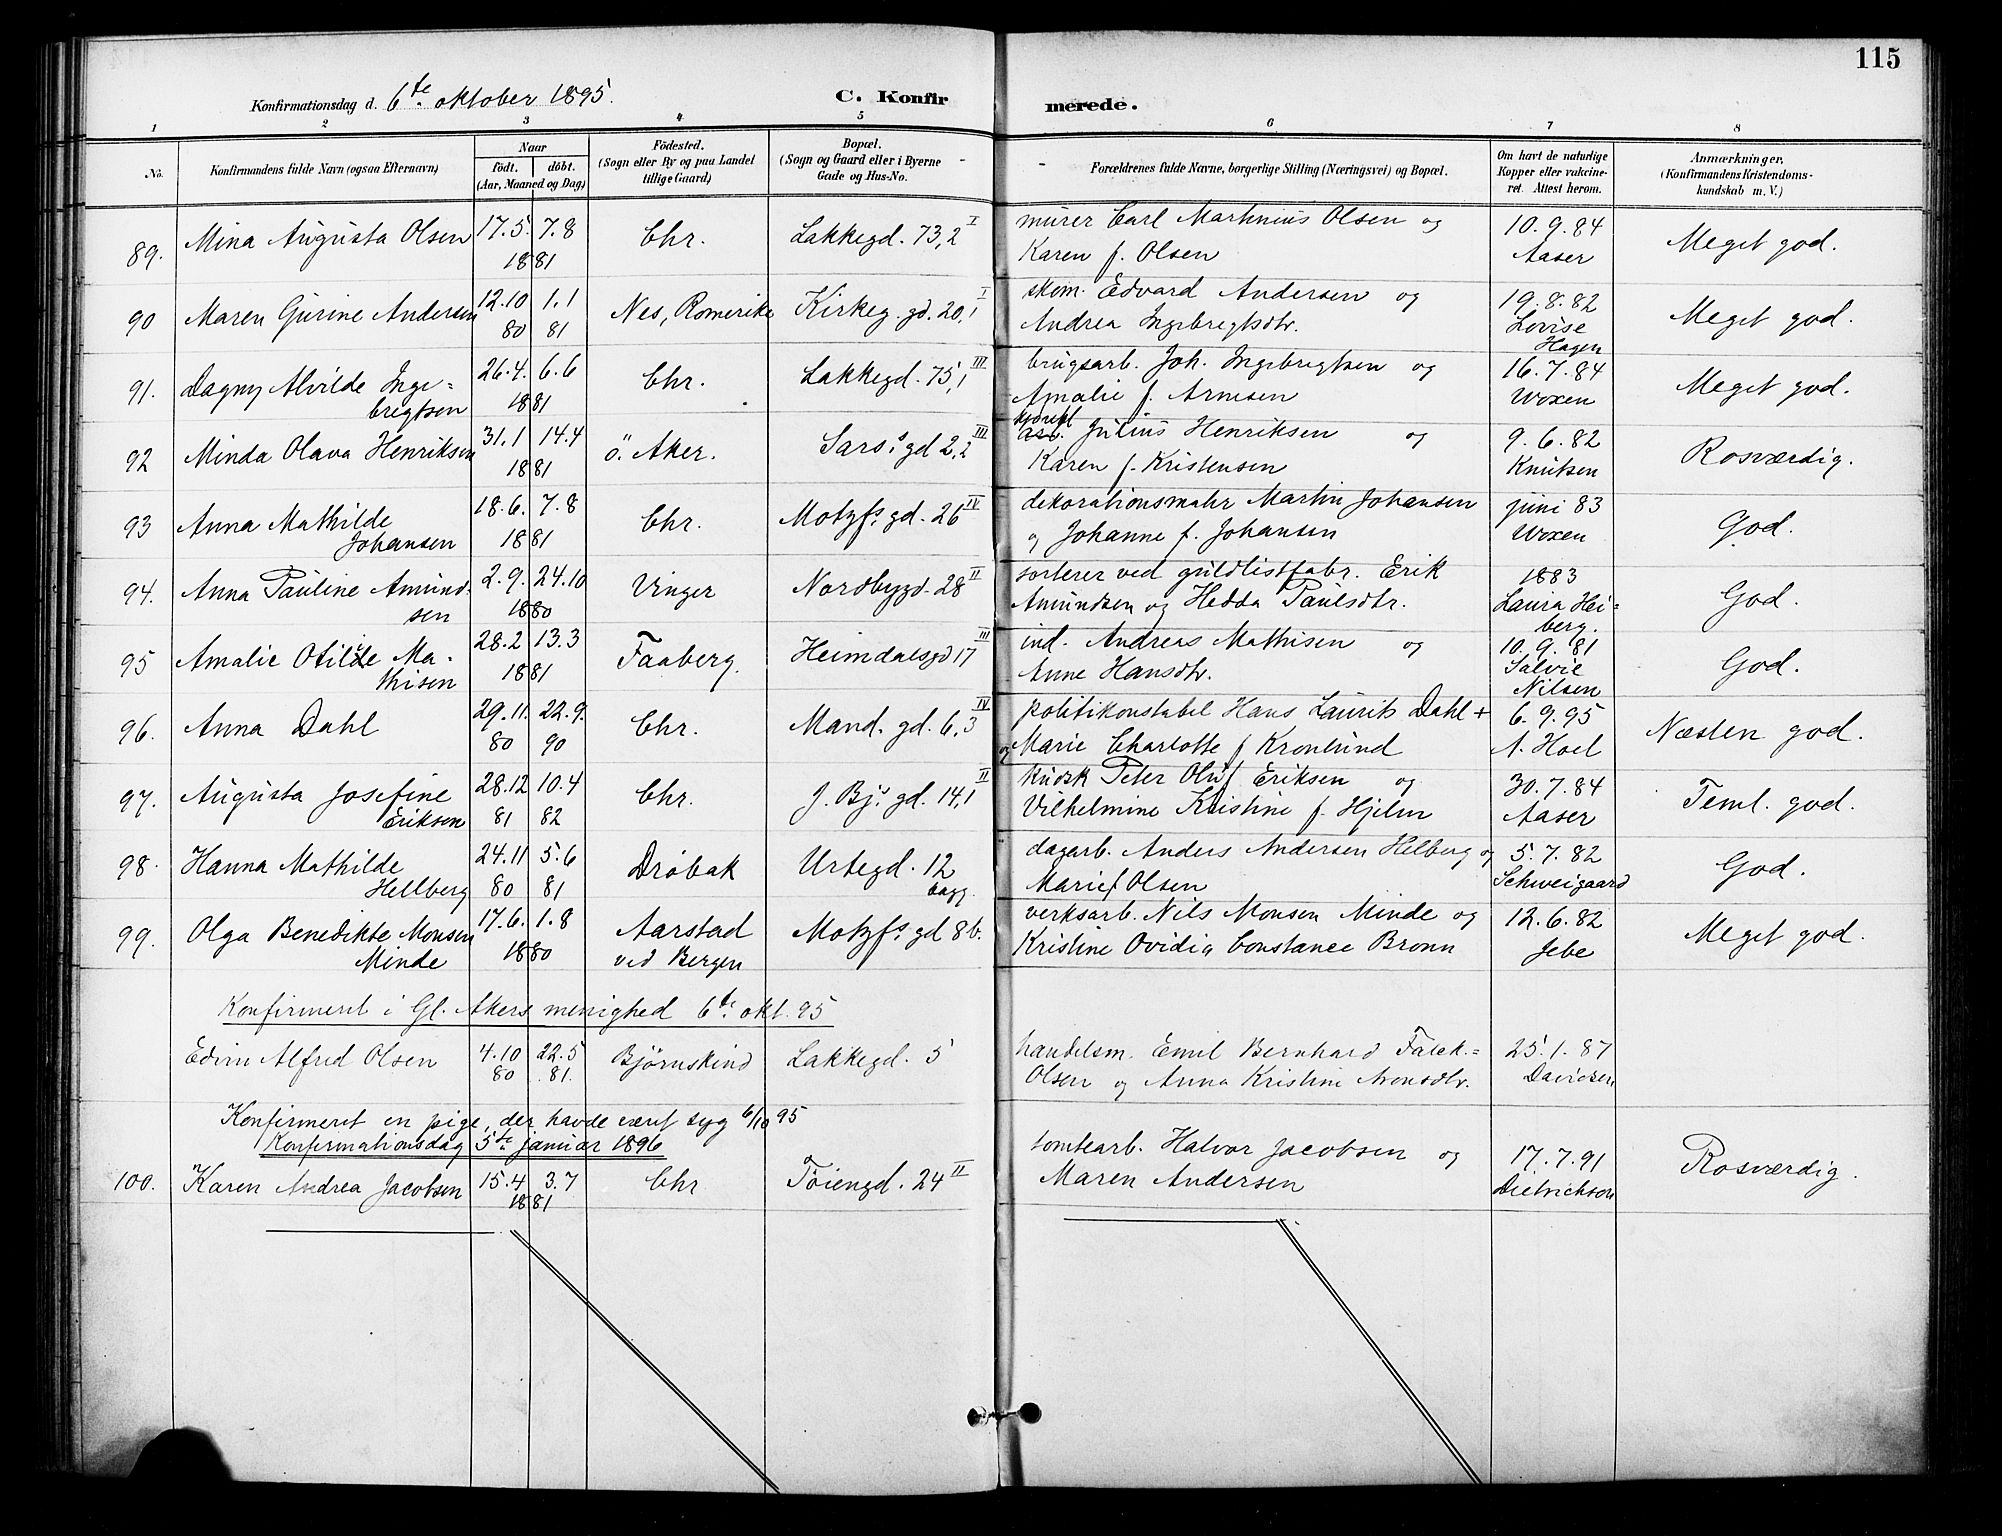 115
Konfirmationsdag d. 6te oktober 1895.
C. Konfir
merede.
1 2 3 4 5 6 7 8
No.
Konfirmandens fulde Navn (ogsaa Efternavn)
Naar
födt. döbt.
(Aar, Maaned og Dag)
Födested.
(Sogn eller By og paa Landet
tillige Gaard)
Bopæl.
(Sogn og Gaard eller i Byerne
Gade og Hus-No.
Forældrenes fulde Navne, borgerlige Stilling (Næringsvei) og Bopæl.
Om havt de naturlige
Kopper eller vakcine-
ret. Attest herom.
Anmærkninger,
(Konfirmandens Kristendoms-
kundskab m. V.)
89. Mina Augusta Olsen 17.5. 7.8 Chr. Lakkegd. 73,2 I murer Carl Martinius Olsen og 10.9.84 Meget god.
1881 Karen f. Olsen Aaser
90 Maren Gurine Andersen 12.10 1.1 Nes, Romerike Kirkeg. gd. 20,1 I skom. Edvard Andersen og 19.8.82 Meget god.
80 81 Andrea Ingebregtsdtr. Lovise
Hagen
91. Dagny Alvilde Inge= 26.4. 6.6 Chr. Lakkegd. 75,1 III brugsarb. Joh. Ingebregtsen og 16.7.84 Meget god.
bregtsen 1881 Amalie f. Arnesen Woxen
92 Minda Olava Henriksen 31.1 14.4 ö. Aker. Sars's gd 2,2 III arb. Julius Henriksen og 9.6.82 Rosværdig.
1881 Karen f. Kristensen Knutsen
93 Anna Mathilde 18.6. 7.8 Chr. Motzfs. gd. 26 IV dekorationsmaler Martin Johansen juni 83 God.
Johansen 1881 og Johanne f. Johansen Woxen
94. Anna Pauline Amund- 2.9. 24.10 Vinger Nordbygd. 28 II sorterer ved guldlistfabr. Erik 1883 God.
sen 1880 Amundsen og Hedda Paulsdtr. Laura Hei-
berg.
95 Amalie Otilde Ma- 28.2 13.3 Faaberg. Heimdalsgd 17 III ind. Andreas Mathisen og 10.9.81 God.
thisen 1881 Anne Hansdtr. Salvie
Nilsen
96. Anna Dahl 29.11. 22.9. Chr. Mand. gd. 6,3 IV politikonstabel Hans Laurits Dahl + 6.9.95 Næsten god.
80 90 og Marie Charlotte f Kronlund A. Hoel
97. Augusta Josefine 28.12 10.4 Chr. J. Bjs. gd. 14,1 II kudsk Peter Oluf Eriksen og 30.7.84 Teml. god.
Eriksen 81 82 Vilhelmine Kristine f. Hjelm Aaser
98. Hanna Mathilde 24.11 5.6 Dröbak Urtegd. 12 dagarb. Anders Andersen Helberg og 5.7.82 God.
Hellberg 80 81 bagg. Marie f Olsen Schweigaard
99. Olga Benedikte Monsen 17.6. 1.8 Aarstad Motzfs gd 8b. verksarb. Nils Monsen Minde og 12.6.82 Meget god.
Minde 1880 ved Bergen Kristine Ovidia Constance Bronn Jebe
Konfirmeret i Gl. Akers menighed 6te okt. 95
Edvin Alfred Olsen 4.10 22.5 Björnskind Lakkegd. 5 handelsm. Emil Bernhard Falck= 25.1.87
80 .81. Olsen og Anna Kristine Aronsdtr. Davidsen
Konfirmeret en pige, der havde været syg 6/10 95
Konfirmationsdag 5te januar 1896
100. Karen Andrea Jacobsen 15.4 3.7 Chr Töiengd. 24 II tomtearb. Halvor Jacobsen og 17.7.91 Rosværdig.
1881 Maren Andersen Dietrichson